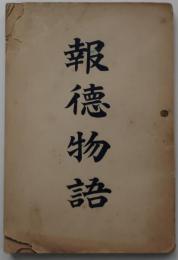 報德物語